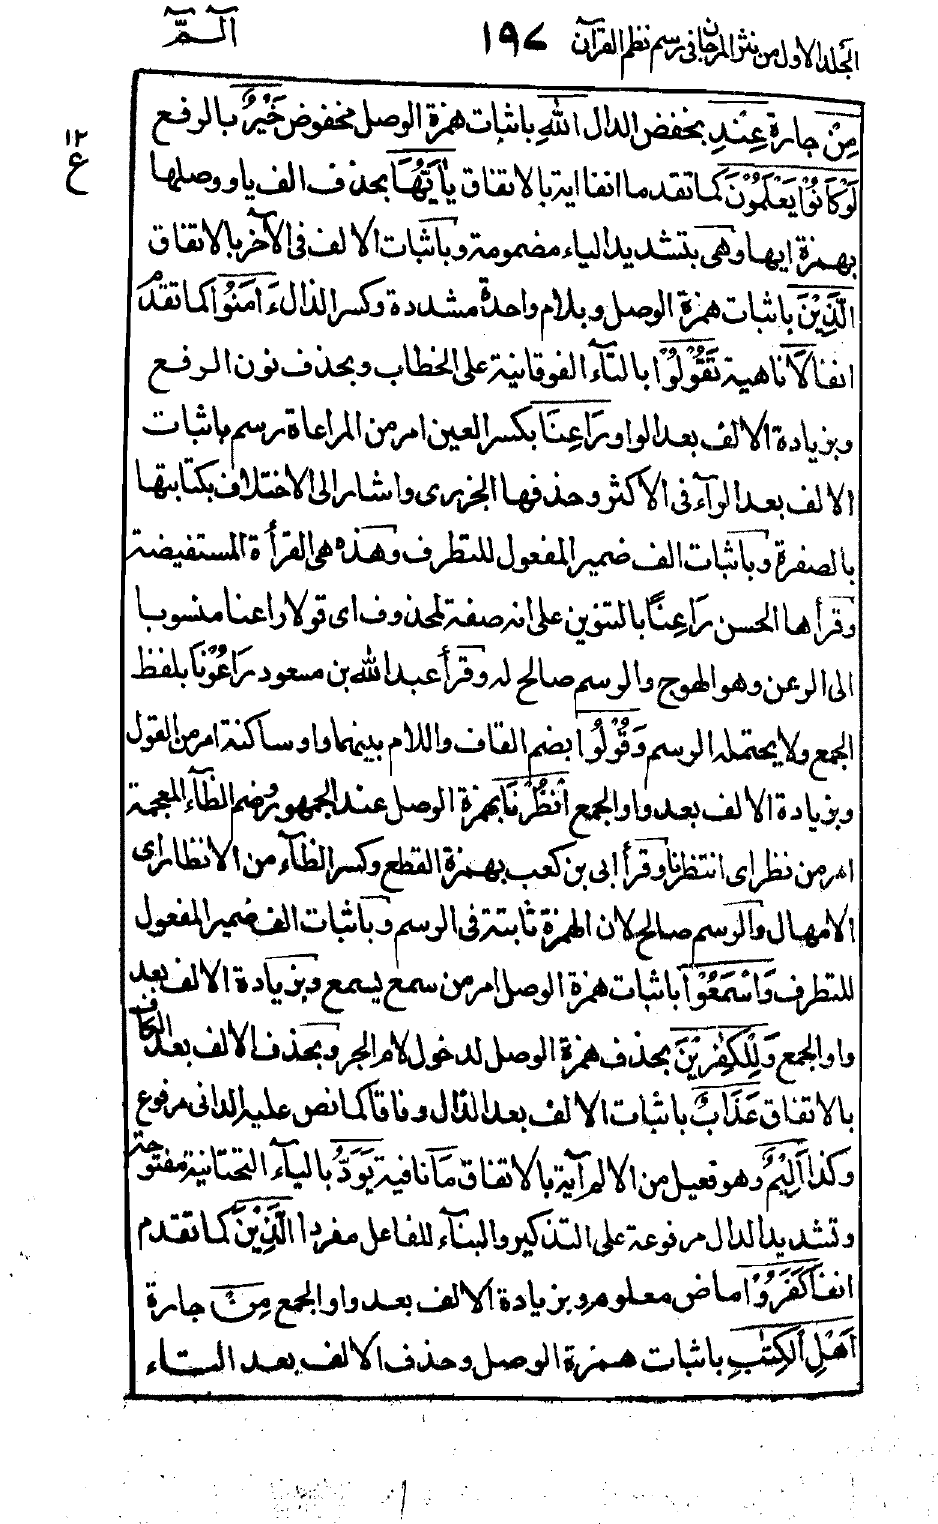 المجلد الاول من نثر المرجان فى رسم نظم القرآن ١٩٧ الـمّ
١٢
ع
مِنْ جارة عِنْدِ بخفض الدال اللهِ باثبات همزة الوصل مخفوض خَيْرٌ بالرفع
لَوْكَانُوْا يَعْلَمُوْنَ كما تقدما انفا اية بالاتفاق يٰاَيُّهَا بحذف الف يا ووصلها
بهمزة ايها وهى بتشديد الياء مضمومة وباثبات الالف فى الآخر بالاتفاق
الَّذِيْنَ باثبات همزة الوصل وبلام واحدة مشددة وكسر الذال ءَامَنُوْا كما تقدم
انفا لَا ناهية تَقُوْلُوْا بالتآء الفوقانية على الخطاب وبحذف نون الرفع
وبزيادة الالف بعد الواو رَاعِنَا بكسر العين امر من المراعاة رسم باثبات
الالف بعد الرآء فى الاكثر وحذفها الجزرى واشار الى الاختلاف بكتابتها
بالصفرة وباثبات الف ضمير المفعول للتطرف وهذه هى القرأة المستفيضة
وقرأها الحسن رَاعِنًا بالتنوين على انه صفة لمحذوف اى قولا راعنا منسوبا
الى الرعن وهو الهوج والرسم صالح له وقرأ عبد الله بن مسعود رَاعُوْنَا بلفظ
الجمع ولا يحتمله الرسم وَقُوْلُوْا بضم القاف واللام بينهما واو ساكنة امر من القول
وبزيادة الالف بعد واو الجمع اُنْظُرْنَا بهمزة الوصل عند الجمهور وضم الظآء المعجمة
امر من نظر اى انتظرنا وقرأ ابى بن كعب بهمزة القطع وكسر الظآء من الانظار اى
الامهال والرسم صالح لان الهمزة ثابتة فى الرسم وباثبات الف ضمير المفعول
للتطرف وَاسْمَعُوْا باثبات همزة الوصل امر من سمع يسمع وبزيادة الالف بعد
واو الجمع وَلِلْكٰفِرِيْنَ بحذف همزة الوصل لدخول لام الجر وبحذف الالف بعد الكاف
بالاتفاق عَذَابٌ باثبات الالف بعد الذال وفاقا كما نص عليه الدانى مرفوع
وكذا اَلِيْمٌ وهو فعيل من الالم آية بالاتفاق مَا نافية يَوَدُّ باليآء التحتانية مفتوحة
وتشديد الدال مرفوعة على التذكير والبنآء للفاعل مفردا الَّذِيْنَ كما تقدم
انفا كَفَرُوْا ماض معلوم وبزيادة الالف بعد واو الجمع مِنْ جارة
اَهْلِ الْكِتٰبِ باثبات همزة الوصل وحذف الالف بعد التاء